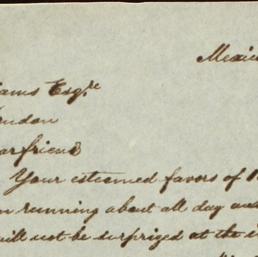 Mexic
iams Esqre
ondon
ar friend
Your esteemed favors of 1
n running about all day and
will not be surprized at the i